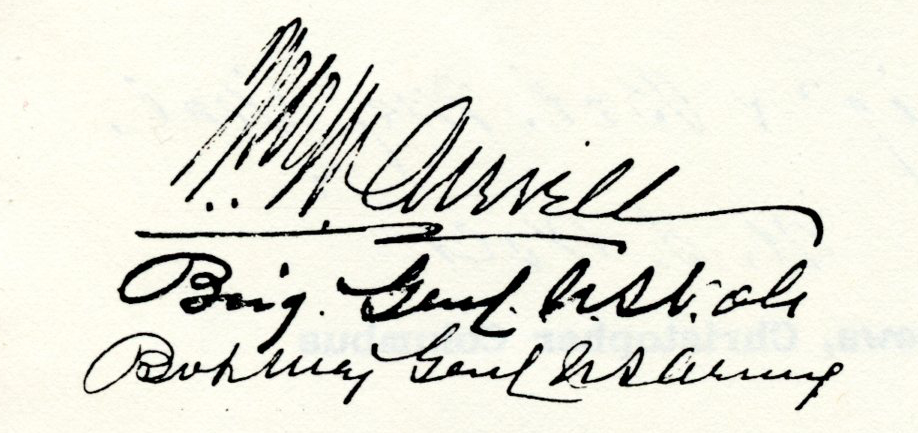 Wm. W. Averell
Brig. Genl. U.S. Vols
Bvt Maj Genl U S Army